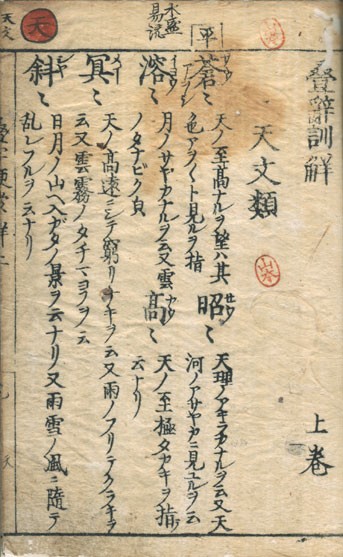 疊辭訓解
上巻
天文類
平
蒼々
天ノ至高ナルヲ望ハ其
色アヲ〱ト見ルヲ指
昭々
天理ノアキラカナルヲ云又天
河ノアサヤカニ見ユルヲ云
溶々
水盛
易流
月ノサヤカナルヲ云又雲
ノタナビク皃
高々
天ノ至極タカキヲ指
云ナリ
冥々
天ノ高遠ニシテ窮リナキヲ云又雨ノフリテクラキヲ
云又雲霧ノタチマヨフヲ云
斜々
日月ノ山ヘ入ガタノ景ヲ云ナリ又雨雪ノ風ニ隨テ
乱レフルヲ云ナリ
天
天文